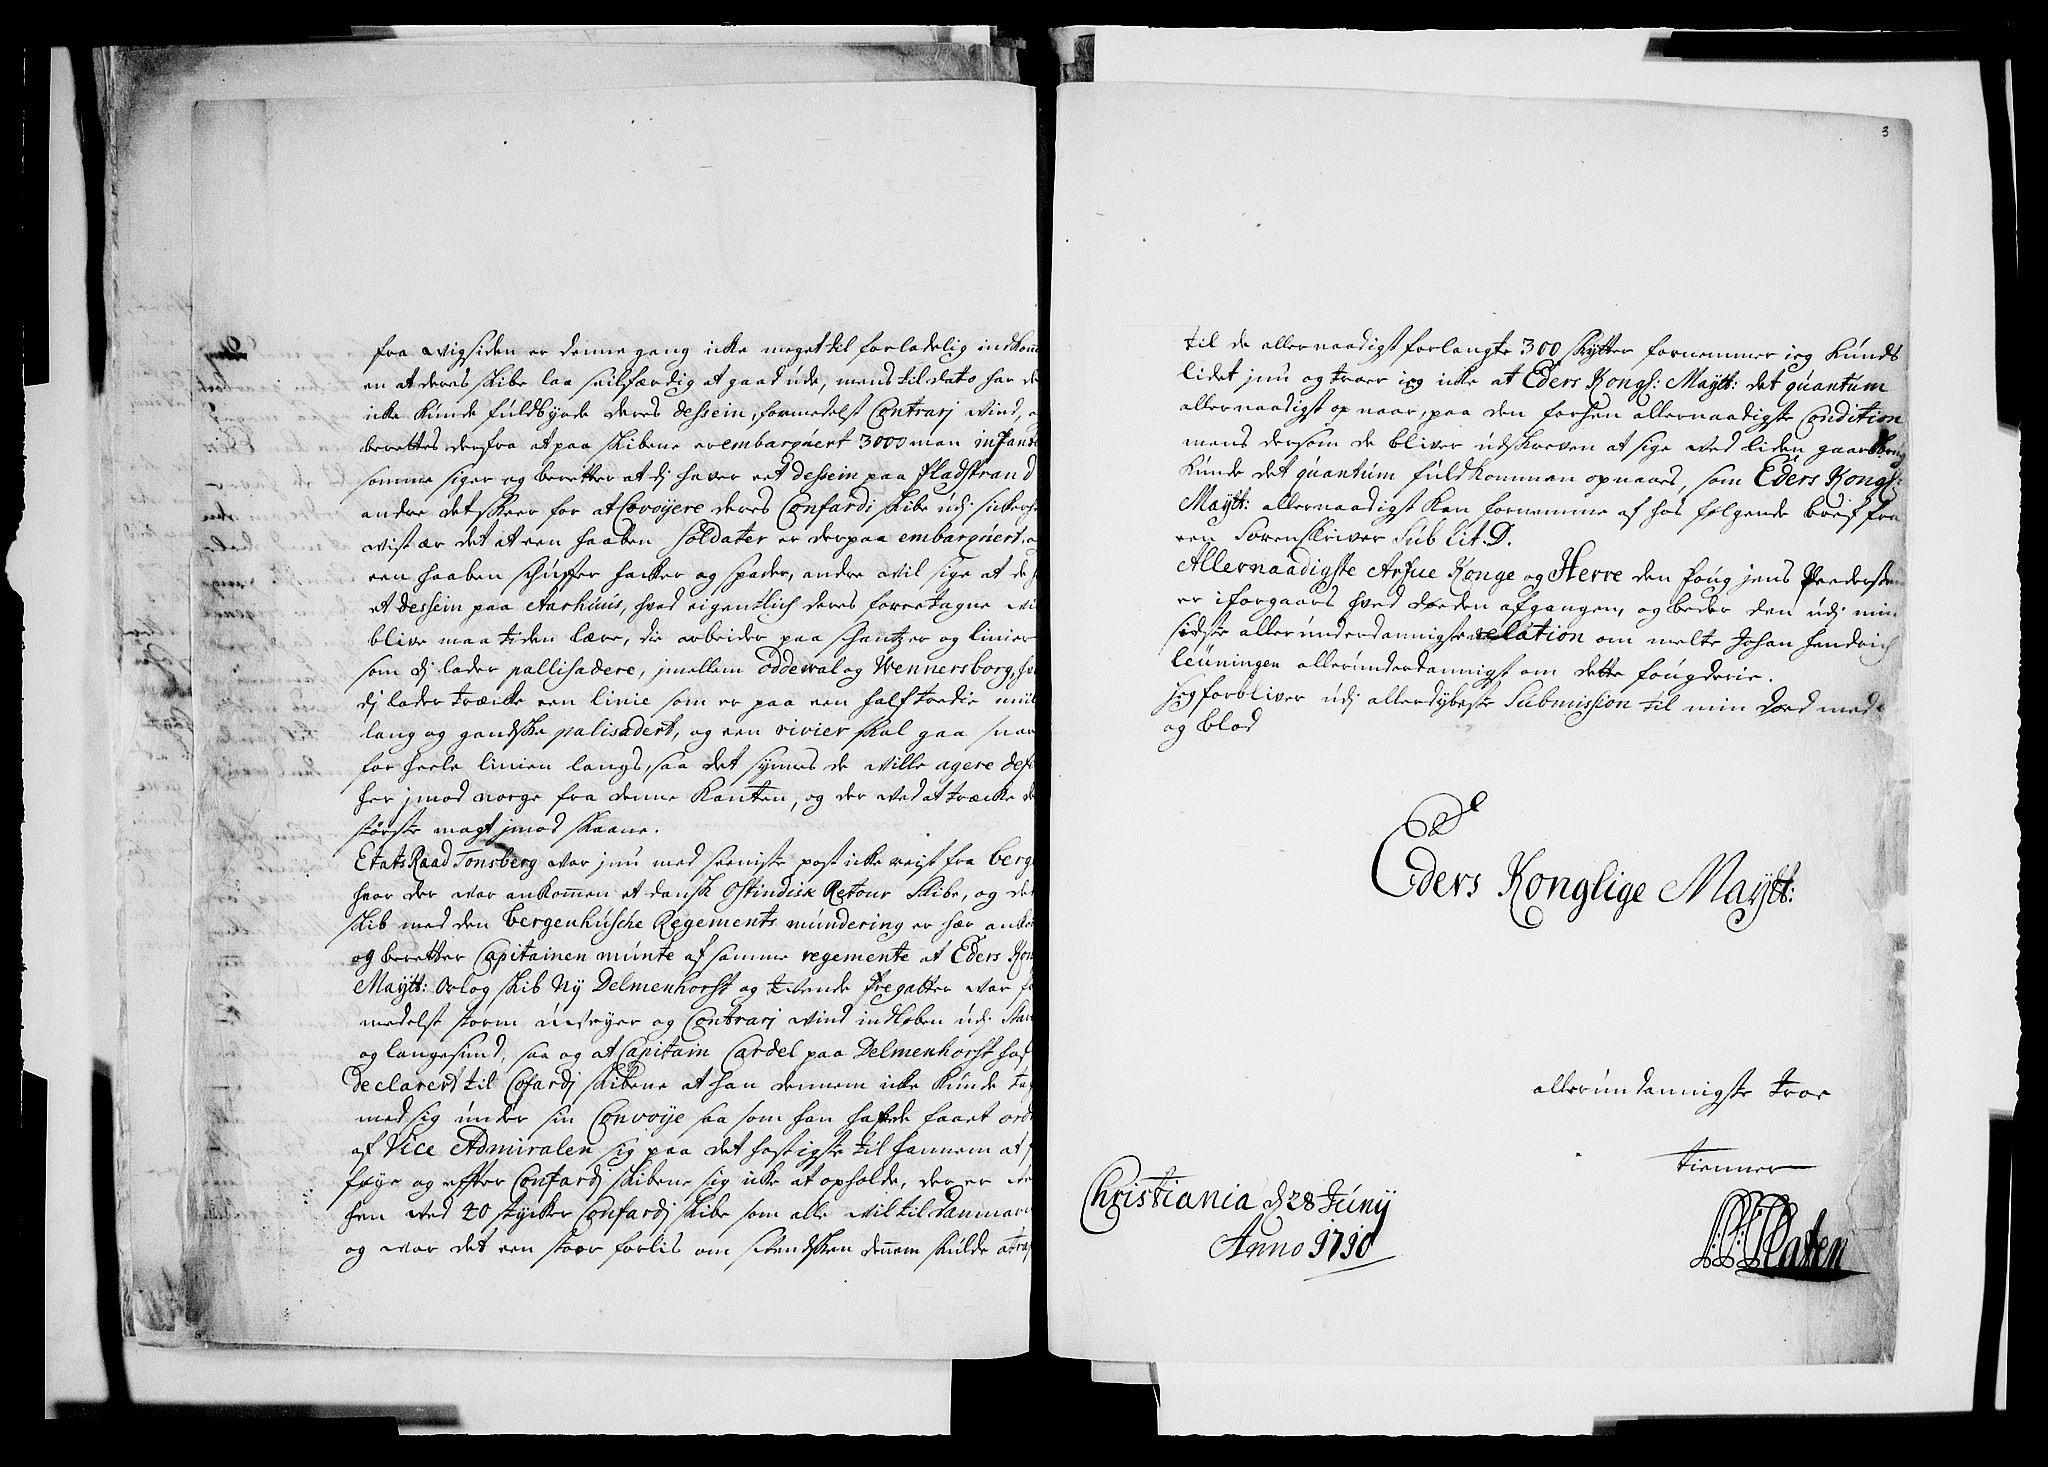 fra wigsiden er denne gang icke meget til forladelig indkom
en at deres skibe laa seilfærdig at gaa ud, mens til dato har de
icke kunde fuldbyrde deres dessein, formedelst Contrarj wind,
berettes derfra at paa skibene er embarqúert 3000 man infante
somme siger og beretter at dj haver eet dessein paa fladstrand
andre det skeer for at Covoÿere deres Confardi skibe údj
wist ær det at een haaben Soldater er derpaa embarqúert,
een haaben schúffer hacker og spader, andre wil sige at de
et dessein paa Aarhúús, hvad eigentlich deres foretagne wi
blive maa tiden lære, die arbeider paa schantzer og linier
som dj lader pallisadere, jmellem oddewal og Wennersborg,
dj lader træcke een linie som er paa een half tredie miil
lang og gandske palisadert, og een rivier skal gaa
for heele linien langs, saa det synnes de wille agere defe
her jmod norge fra denne kanten, og der wed at træcke de
største magt jmod skaane.
Etats Raad Tonsberg war jnu med seeniste post icke reist fra berge
hvor der war ankommen et dansk Ostindisk Retour skibe, og det
skib med den bergenhúsche Regements múndering er hær anko
og beretter Capitainen múnte af samme regemente at Eders Kon
Maytt: Orlog skib Nÿ Delmenhorst og tvende fregatter war
medelst storm únweyer og Contrarj wind indløben údj
og langesúnd, saa og at Capitain Cardel paa Delmenhorst haf
declarert til Cofardj skibene at han dennem icke kúnde ta
med sig únder sin Convoÿe saa som han hafde faaet ord
af Vice Admiralen sig paa det hastigste til hannem at
føÿe og efter Confardj skibene sig icke at opholde, der er
hen wed 40 stÿcker Confardj skibe som alle wil til Danmarc
og war det een stoor forlis om swendsken dennem skúlde
3
til de allernaadigst forlangte 300 skytter fornemmer ieg kúnds
lidet jnu og troer ieg icke at Eders Kongl: Maytt: det quantúm
allernaadigst opnaar, paa den forhen allernaadigste Condition
mens dersom de bliver údskreven at sige wed liden
kúnde det quantúm fúldkommen opnaaes, som Eders Kongl:
Maytt: allernaadigst kan fornemme af hos følgende breif fra
een Sorenskriver Sub Lit. D.
Allernaadigste Arfue Konge og Herre den foug jens Peedersen
er iforgaars hved døden afgangen, og beder den údj min
sidste allerúnderdannigste relation om melte Johan Hendrich
Leúningen allerúnderdannigst om dette foúgderie.
Jeg forbliver údj allerdybeste Submission til min død med
og blod
Eders Konglige Maÿtt:
allerúndannigste troe
tienner
Christiania d 28 Júnÿ
Anno 1710
Platen